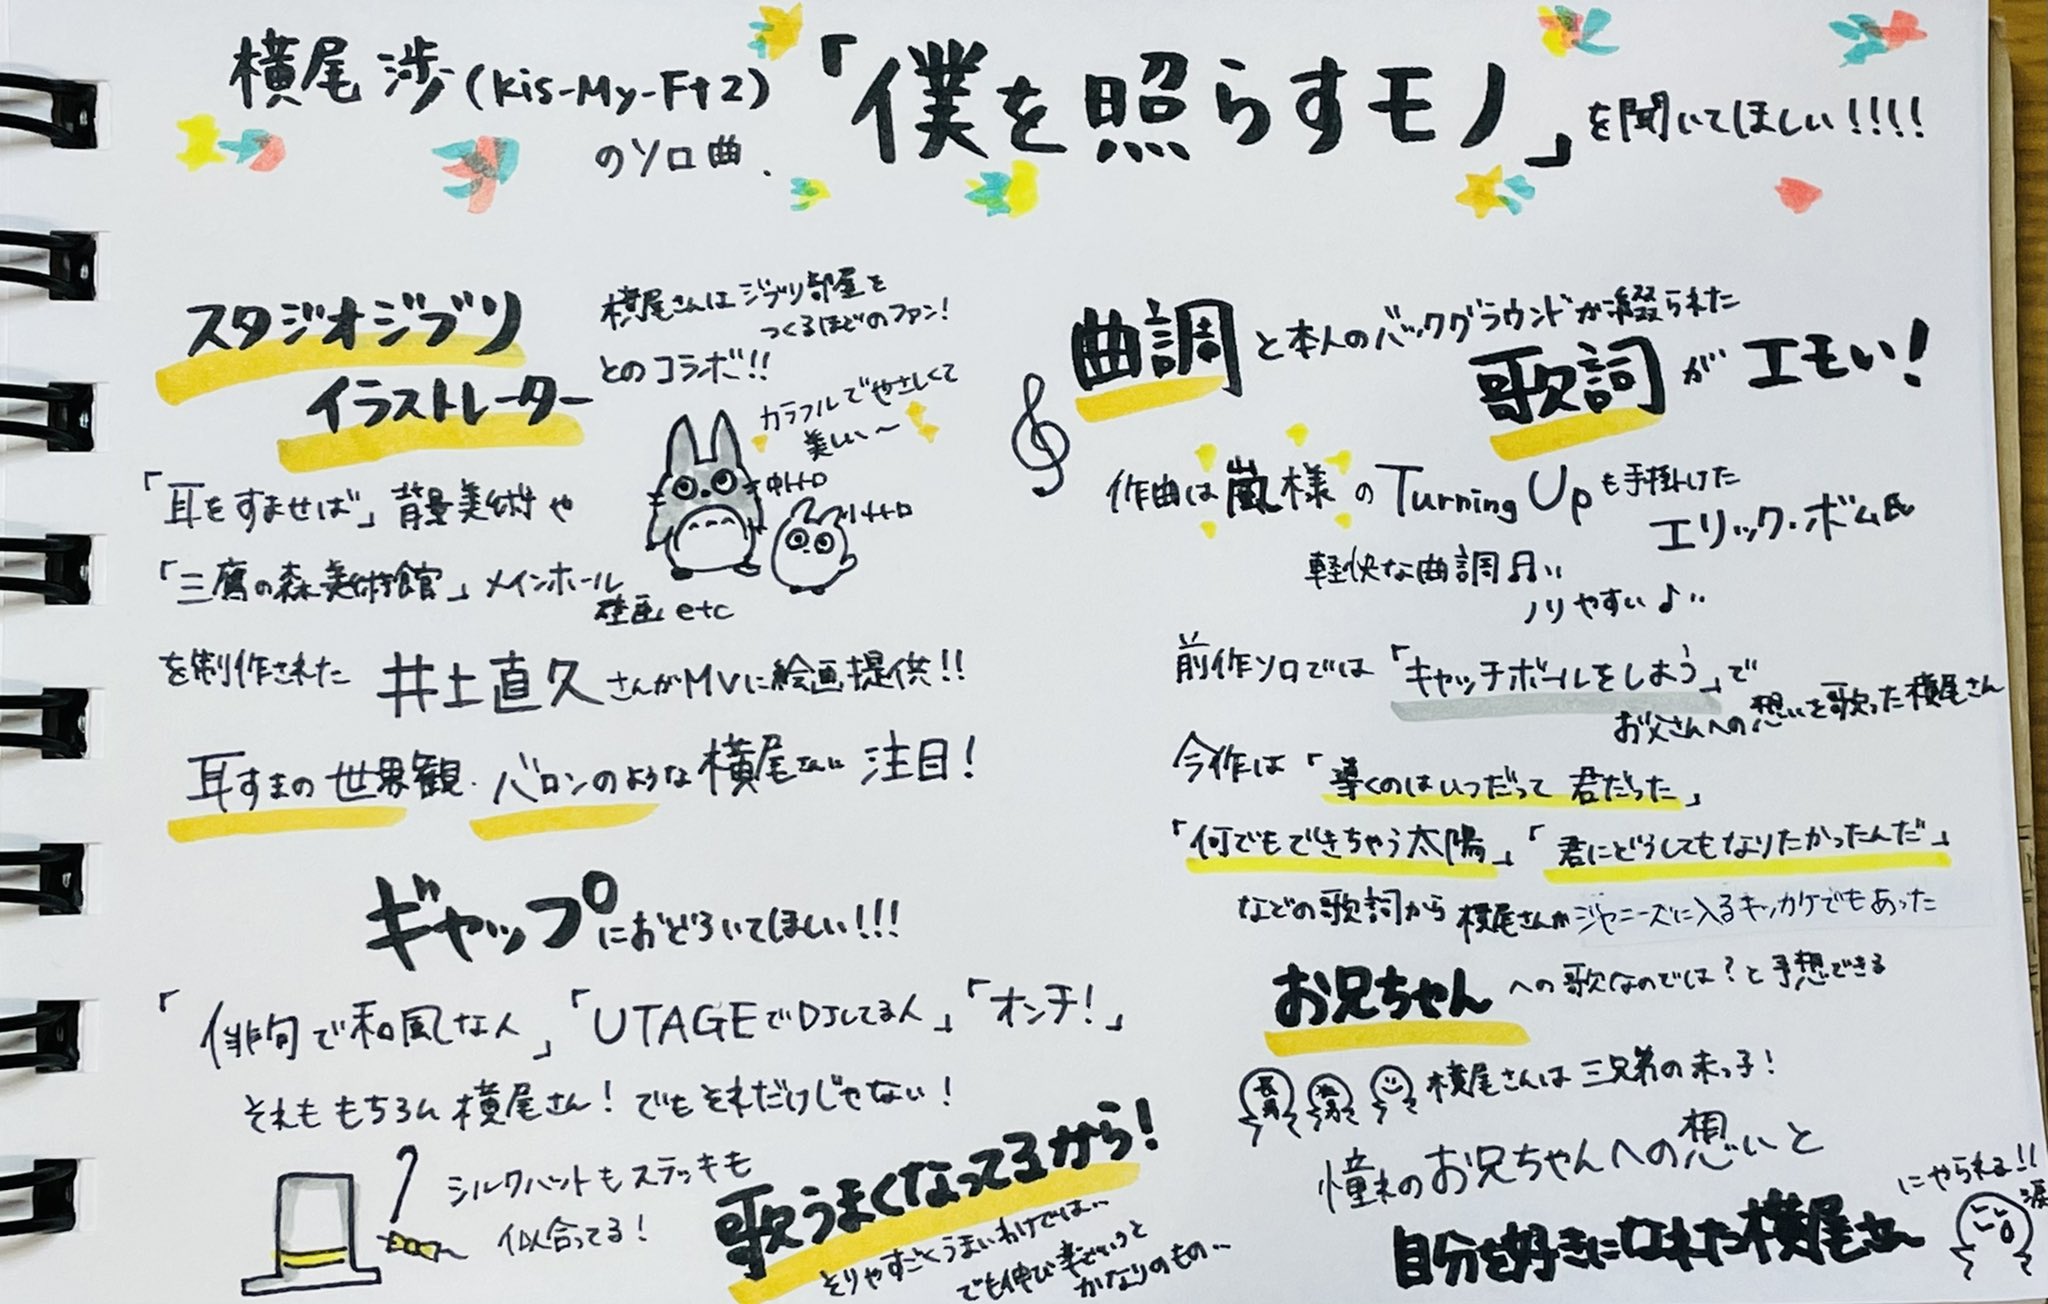 横尾渉(Kis-My-Ft2)
のソロ曲、
「僕を照らすモノ」
を聞いてほしい!!!!
スタジオジブリ
イラストレーター
とのコラボ!!
横尾さんはジブリ部屋を
つくるほどのファン!
カラフルでやさしくて
美しい〜
中トトロ
小トトロ
「耳をすませば」背景美術や
「三鷹の森美術館」メインホール
壁画etc
を制作された 井上直久さんがMVに絵画提供!!
耳すまの世界観・バロンのような横尾さんに注目!
ギャップにおどろいてほしい!!!
「俳句で和風な人」「UTAGEでDJしてる人」「オンチ!」
それももちろん横尾さん!でもそれだけじゃない!
シルクハットもステッキも
似合ってる!
歌うまくなってるから!
そりゃすごくうまいわけでは…
でも伸び率でいうと
かなりのもの…
曲調と本人のバックグラウンドが綴られた
歌詞がエモい!
作曲は嵐様のTurning Upも手掛けた
エリック・ボム氏
軽快な曲調♫‥
ノリやすい♪‥
前作ソロでは「キャッチボールをしよう」で
お父さんへの想いを歌った横尾さん
今作は「導くのはいつだって 君だった」
「何でもできちゃう太陽」「君にどうしてもなりたかったんだ」
などの歌詞から 横尾さんがジャニーズに入るキッカケでもあった
お兄ちゃんへの歌なのでは?と予想できる
横尾さんは三兄弟の末っ子!
憧れのお兄ちゃんへの想いと
自分を好きになれた横尾さん
にやられる!!
涙